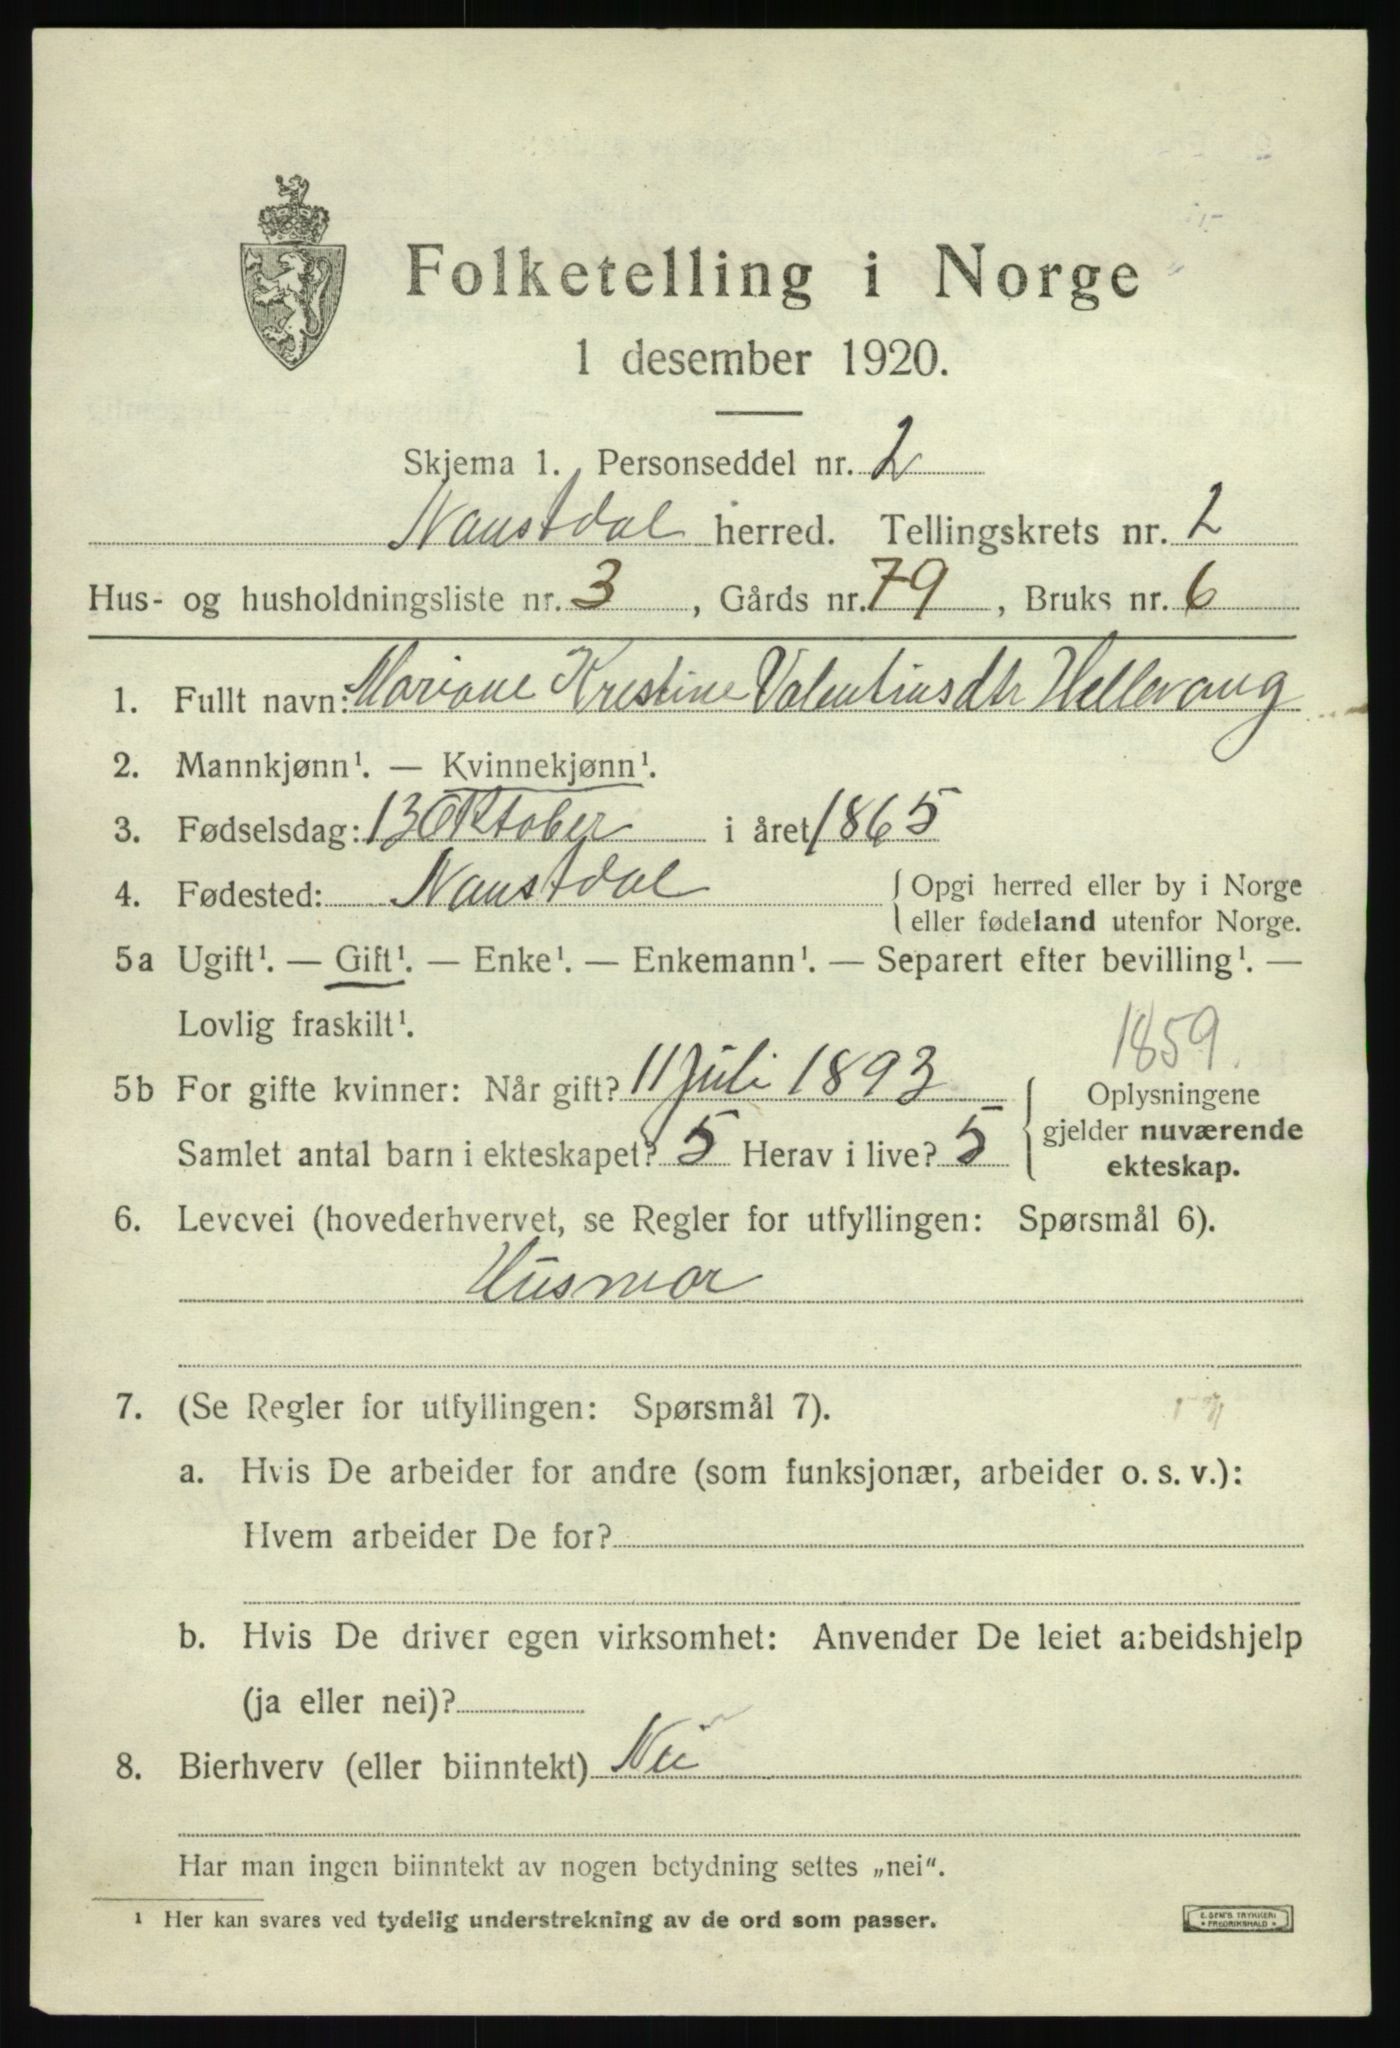 Folketelling i Norge
1 desember 1920.
Skjema 1. Personseddel nr. 2
Naustdal herred. Tellingskrets nr. 2
Hus- og husholdningsliste nr. 3, Gårds nr. 79, Bruks nr. 6
1. Fullt navn: Mariane Kristine Valentinsdtr Hellevang
2. Mannkjønn¹. — Kvinnekjønn¹.
3. Fødselsdag: 13 Oktober i året 1865
4. Fødested: Naustdal { Opgi herred eller by i Norge
eller fødeland utenfor Norge.
5a Ugift¹. — Gift¹. — Enke¹. — Enkemann¹. — Separert efter bevilling¹. —
Lovlig fraskilt¹.
1859.
5b For gifte kvinner: Når gift? 11 Juli 1893 { Oplysningene
gjelder nuværende
Samlet antal barn i ekteskapet? 5 Herav i live? 5 ekteskap.
6. Levevei (hovederhvervet, se Regler for utfyllingen: Spørsmål 6).
Husmor
7. (Se Regler for utfyllingen: Spørsmål 7).
a. Hvis De arbeider for andre (som funksjonær, arbeider o. s. v.):
Hvem arbeider De for?
b. Hvis De driver egen virksomhet: Anvender De leiet arbeidshjelp
(ja eller nei)?
8. Bierhverv (eller biinntekt) Nei
Har man ingen biinntekt av nogen betydning settes „nei".
¹ Her kan svares ved tydelig understrekning av de ord som passer.
E. SEM'S TRYKKERI
FREDRIKSHALD